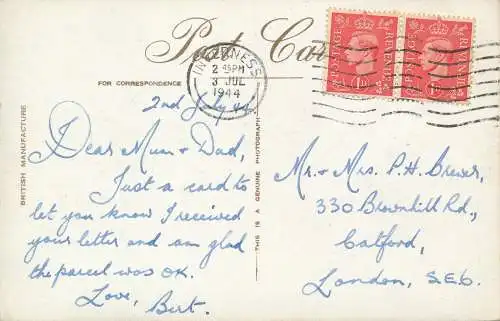 Post Card
FOR CORRESPONDENCE
INVERNESS
2 45 PM
3 JUL
1944
POSTAGE REVENUE
1D
POSTAGE REVENUE
1D
BRITISH MANUFACTURE
THIS IS A GENUINE PHOTOGRAPH.
2nd July 44.
Dear Mum & Dad,
Just a card to
let you know I received
your letter and am glad
the parcel was OK.
Love, Bert.
Mr. & Mrs. P.H. Brewer,
330 Brownhill Rd.,
Catford,
London, S.E.6.